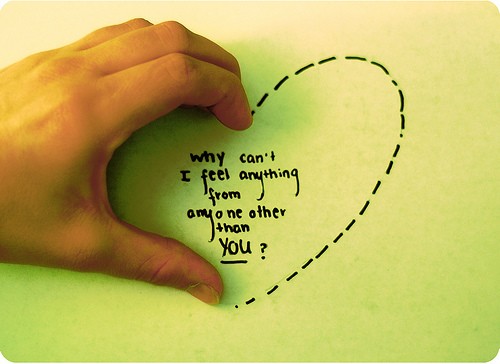 why can't
I feel anything
from
anyone other
than
YOU?